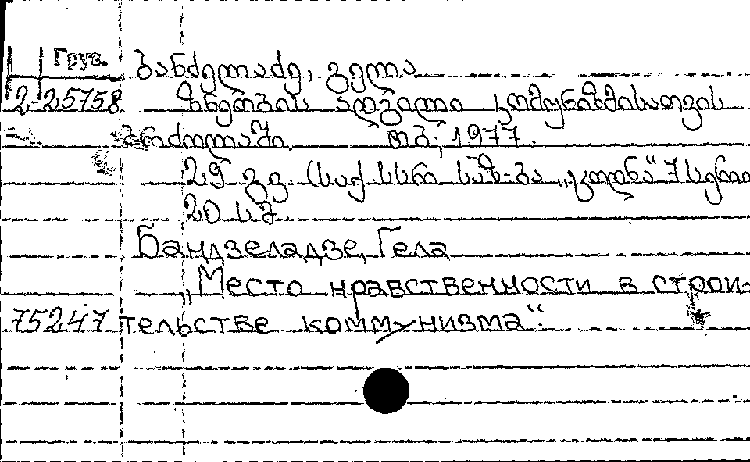 Груз. ბანძელაძე, გელა
2-25758 ზნეობის ადგილი კომუნიზმისათვის
ბრძოლაში. თბ., 1977.
29 გვ. (საქ. სსრ საზ-ბა „ცოდნა“ 7 სერია
20 კპ.
Бандзеладзе, Гела
„Место нравственности в строи-
75247 тельстве коммунизма“.